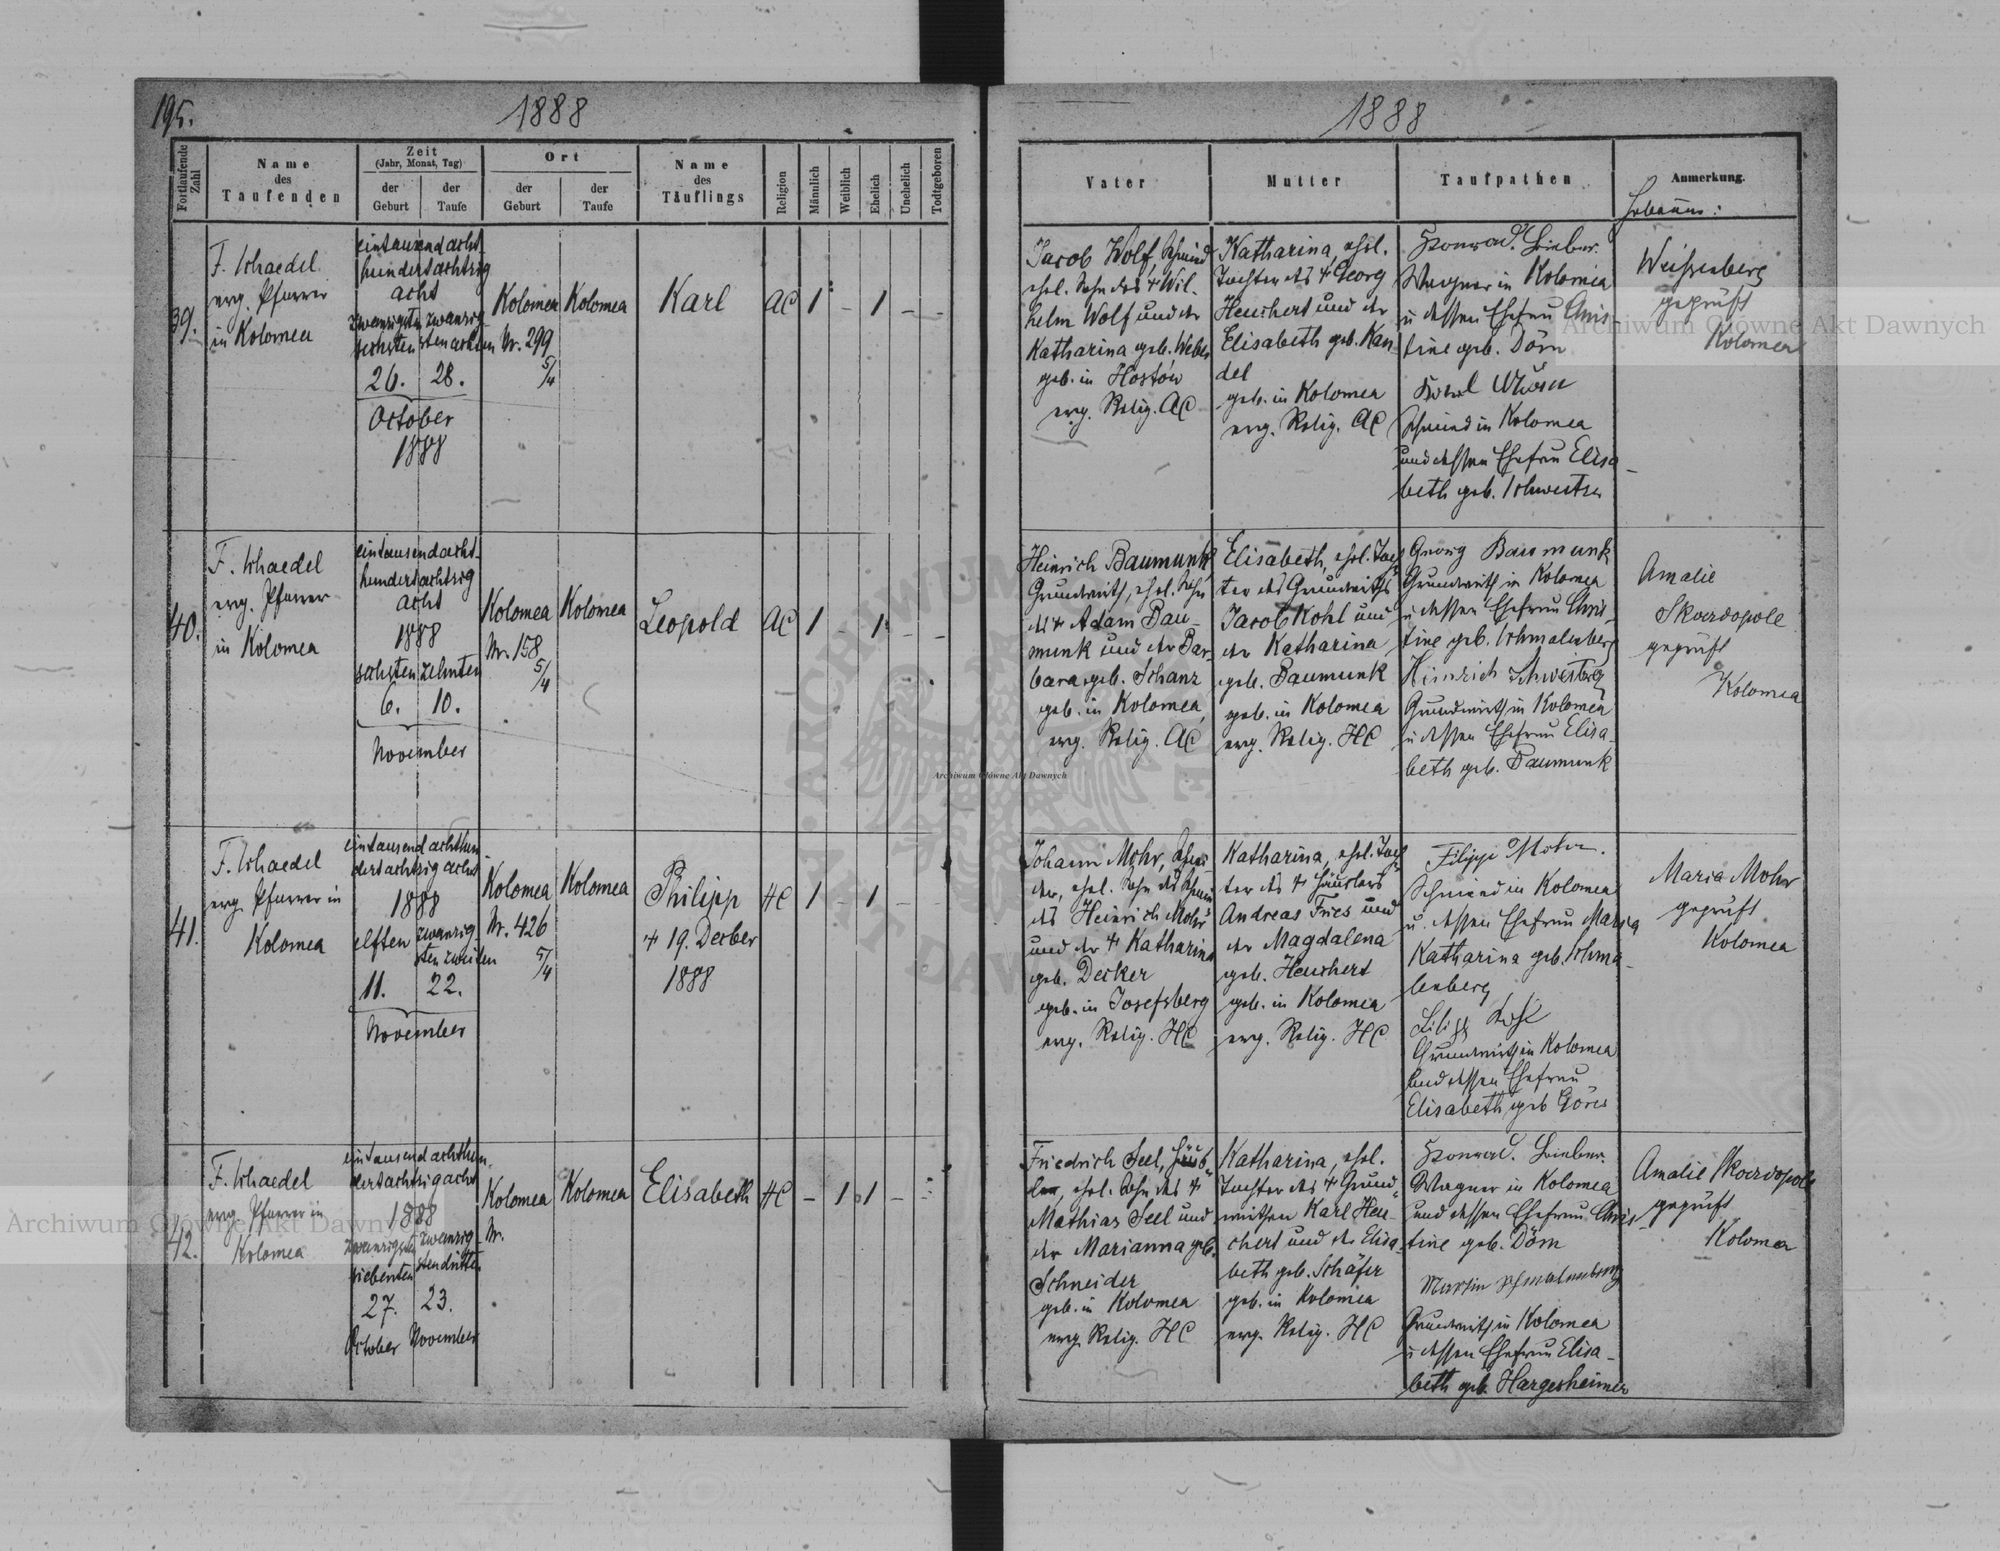 195.
1888
1888
Fortlaufende Zahl
Name des Taufenden
Zeit
(Jahr, Monat, Tag)
der Geburt
der Taufe
Ort
der Geburt
der Taufe
Name des Täuflings
Religion
Männlich
Weiblich
Ehelich
Unehelich
Todtgeboren
Vater
Mutter
Taufpathen
Anmerkung.
Hebamme:
39.
F. Schaedel
evg. Pfarrer
in Kolomea
eintausend acht
hundertachtzig
acht
zwanzigsten zwanzig
sechsten sten achten
26. 28.
October
1888
Kolomea
Nr. 299
5/4
Kolomea
Karl
AC
1
–
1
–
–
Jacob Wolf, Schmied
ehel. Sohn des + Wil-
helm Wolf und der
Katharina geb. Weber
geb. in Hostów
evg. Relig. AC
Katharina, ehel.
Tochter des + Georg
Heuchert und der
Elisabeth geb. Kan-
del
geb. in Kolomea
evg. Relig. AC
Konrad
Wagner in Kolomea
u dessen Ehefrau Chris
tine geb. Dörn
Schmied in Kolomea
und dessen Ehefrau Elisa-
beth geb.
Weissenberg
geprüft
Kolomea
40.
F. Schaedel
evg. Pfarrer
in Kolomea
eintausendacht-
hundertachtzig
acht
1888
sechsten zehnten
6. 10.
November
Kolomea
Nr. 158
5/4
Kolomea
Leopold
AC
1
–
1
–
–
Heinrich Baumunk
Grundwirth, ehel. Sohn
des + Adam Bau-
munk und der Bar-
bara geb. Schanz
geb. in Kolomea,
evg. Relig. AC
Elisabeth, ehel. Toch
ter des Grundwirths
Jacob Kohl und
der Katharina
geb. Baumunk
geb. in Kolomea
evg. Relig. HC
Georg Baumunk
Grundwirth in Kolomea
u dessen Ehefrau Chris-
tine geb. Schmalenberg
Heinrich
Grundwirth in Kolomea
u dessen Ehefrau Elisa-
beth geb. Baumunk
Amalie
Skordopole
geprüft
Kolomea
41.
F. Schaedel
evg. Pfarrer in
Kolomea
eintausend achthun-
dertachtzig acht
1888
elften zwanzig
sten zweiten
11. 22.
November
Kolomea
Nr. 426
5/4
Kolomea
Philipp
+ 19. Decber
1888
HC
1
–
1
–
–
Johann Mohr,
ehel. Sohn des
des Heinrich Mohr
und der + Katharina
geb. Decker
geb. in Josefsberg
evg. Relig. HC
Katharina, ehel. Toch
ter des + Häuslers
Andreas Fries und
der Magdalena
geb. Heuchert
geb. in Kolomea
evg. Relig. HC
Filipp
Schmied in Kolomea
u. dessen Ehefrau Maria
Katharina geb. Schma-
lenberg
Grundwirth in Kolomea
und dessen Ehefrau
Elisabeth geb Göres
Maria Mohr
geprüft
Kolomea
42.
F. Schaedel
evg. Pfarrer in
Kolomea
eintausend achthun-
dertachtzig acht
1888
zwanzigsten zwanzig-
siebenten sten dritten
27. 23.
October November
Kolomea
Nr.
Kolomea
Elisabeth
HC
–
1
1
–
–
Friedrich Seel, Häus
ler, ehel. Sohn des +
Mathias Seel und
der Marianna geb.
Schneider
geb. in Kolomea
evg. Relig. HC
Katharina, ehel.
Tochter des + Grund-
wirthen Karl Heu-
chert und der Elisa
beth geb. Schäfer
geb. in Kolomea
evg. Relig. HC
Konrad
Wagner in Kolomea
und dessen Ehefrau Chris-
tine geb. Dörn
Martin Schmalenberg
Grundwirth in Kolomea
u dessen Ehefrau Elisa-
beth geb. Hargesheimer
Amalie Skordopole
geprüft
Kolomea
Archiwum Główne Akt Dawnych
Archiwum Główne Akt Dawnych
Archiwum Główne Akt Dawnych